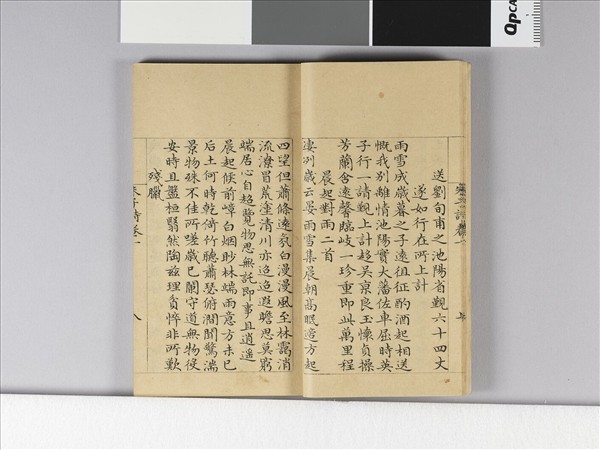 QpCA
送劉旬甫之池陽省覲六十四丈
遂如行在所上計
雨雪成歲暮之子遠徂征酌酒起相送
慨我別離情池陽實大藩佐車屈時英
子行一請覲上計趨吳京良玉懷貞操
芳蘭含遠馨臨岐一珍重即此萬里程
晨起對雨二首
凄冽歲云晏雨雪集晨朝高眠適方起
四望但蕭條遠氛白漫漫風至林靄消
流潦冒荒塗清川亦迢迢遐瞻思莫窮
端居心自超覽物思無託即事且逍遙
晨起候前嶂白烟眇林端雨意方未已
后土何時乾倚竹聽蕭瑟俯澗聞驚湍
景物殊不佳所嗟歲已闌守道無物役
安時且盤桓翳然陶茲理貧悴非所歎
殘臘
朱子詩卷一
八